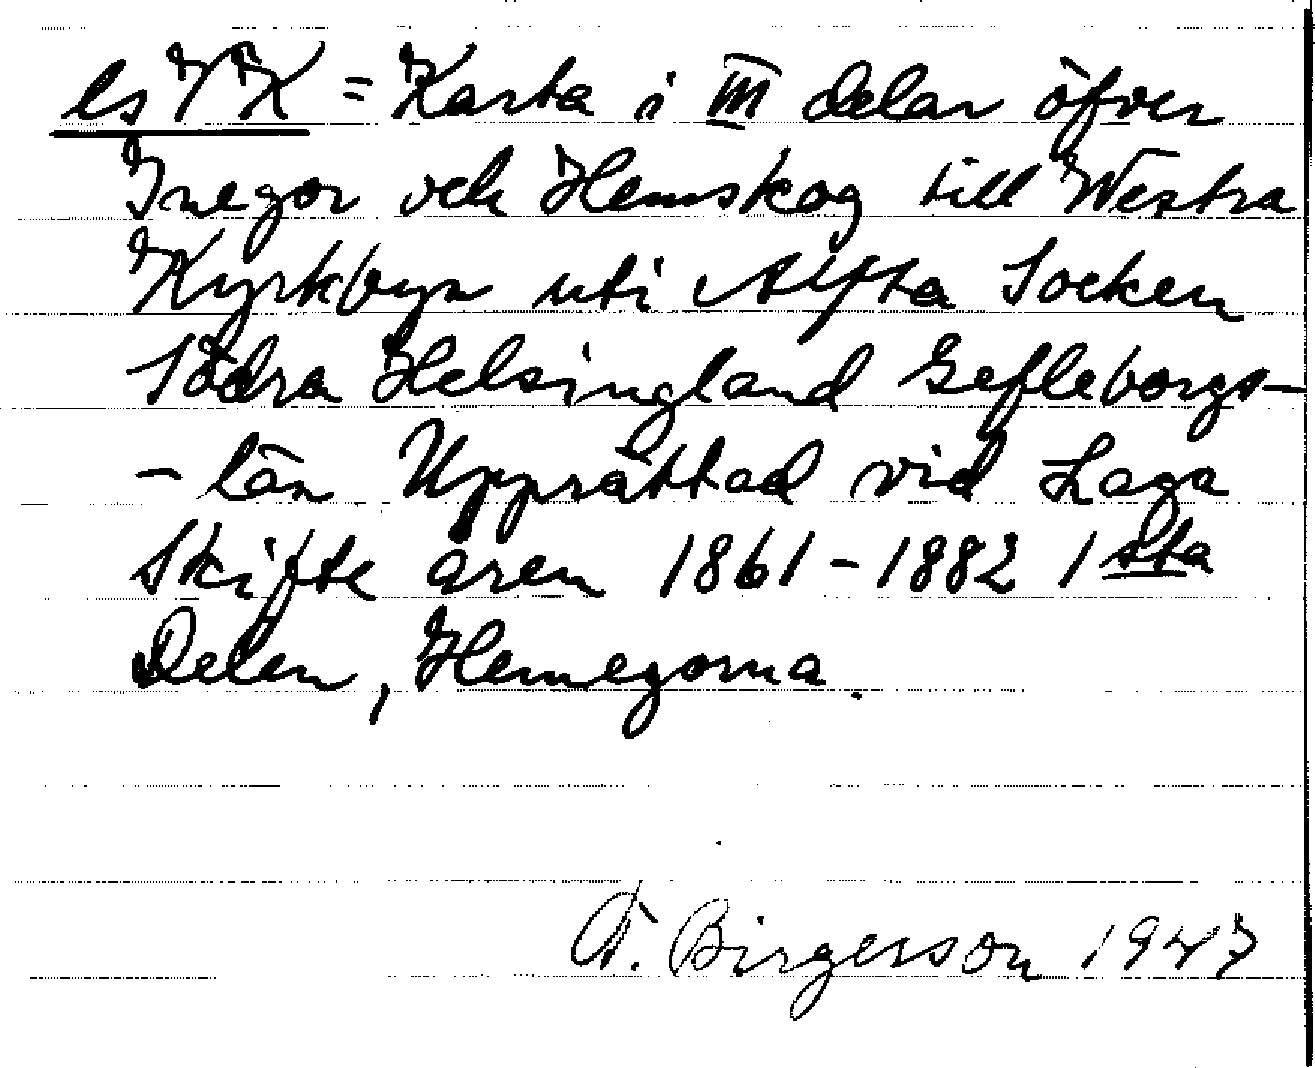 ls VK = Karta i III delar öfver
Inegor och Hemskog till Westra
Kyrkbyn uti Alfta Socken
Södra Helsingland Gefleborgs-
- län Upprättad vid Laga
Skifte åren 1861-1882 1 sta
Delen, Hemegorna.
Birgerson 1947